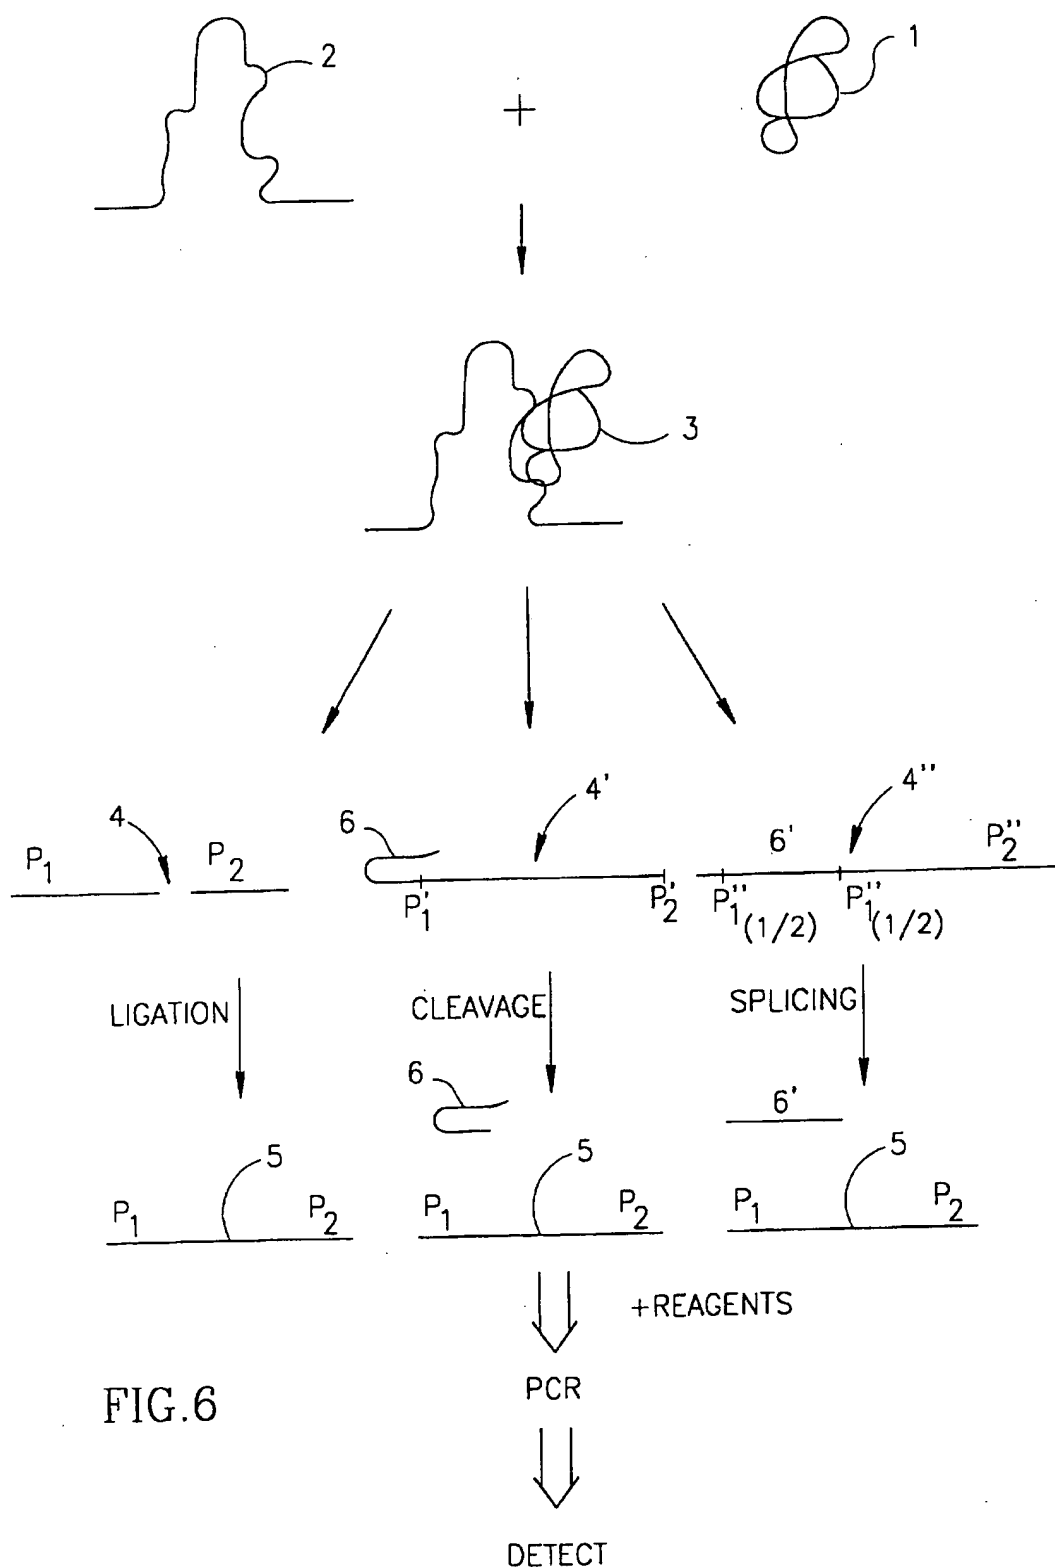 2
+
1
3
4
P1
P2
6
4'
P'1
P'2
4''
6'
P''2
P''1(1/2)
P''1(1/2)
LIGATION
CLEAVAGE
SPLICING
6
6'
5
5
5
P1
P2
P1
P2
P1
P2
+REAGENTS
PCR
FIG.6
DETECT